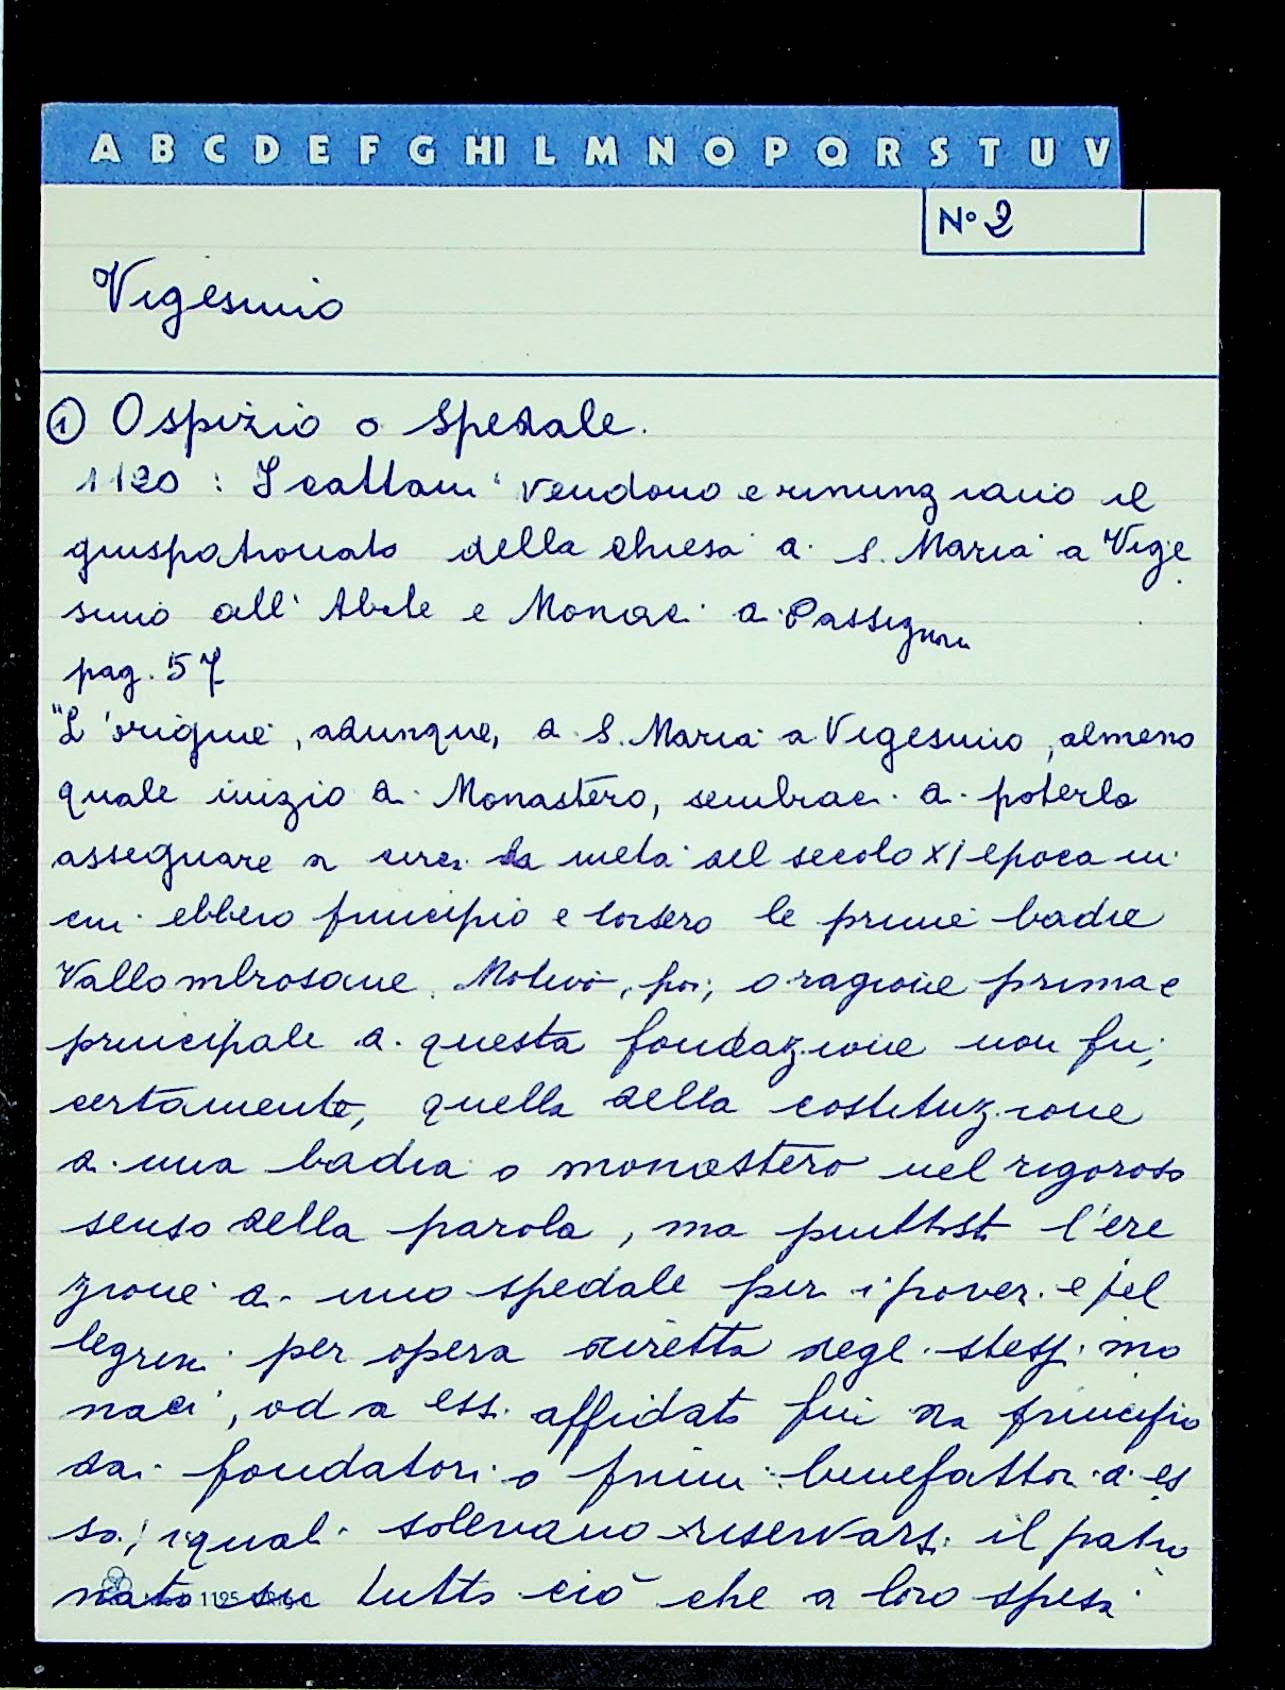 A B C D E F G HI L M N O P Q R S T U V
N° 2
Vigesimo
① Ospizio o Spedale.
1120 : I cattani vendono e rinunziano il
giuspatronato della chiesa di S. Maria a Vige
simo all' Abate e Monaci di Passignano
pag. 57
"L'origine, adunque, di S. Maria a Vigesimo, almeno
quale inizio di Monastero, sembraci di poterla
assegnare a circa la metà del secolo XI epoca in
cui ebbero principio e sorsero le prime badie
Vallombrosane. Motivo, poi, o ragione prima e
principale di questa fondazione non fu,
certamente, quella della costituzione
di una badia o monastero nel rigoroso
senso della parola, ma piuttosto l'ere
zione di uno spedale per i poveri e pel
legrini per opera diretta degli stessi mo
naci, od a essi affidato fin da principio
dai fondatori o primi benefattori di es
so, i quali solevano riservarsi il patro
nato su tutto ciò che a loro spesa